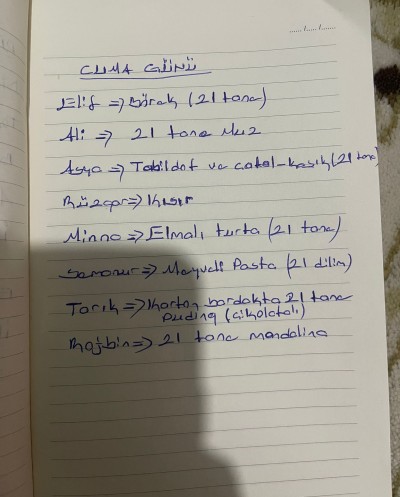 ..../..../....
CUMA GÜNÜ
Elif => Börek (21 tane)
Ali => 21 tane Muz
Asya => Tabildot ve çatal-kaşık (21 tane)
Rüzgar => Kısır
Minna => Elmalı turta (21 tane)
Semanur => Meyveli Pasta (21 dilim)
Tarık => Karton bardakta 21 tane
puding (çikolatalı)
21 tane mandalina